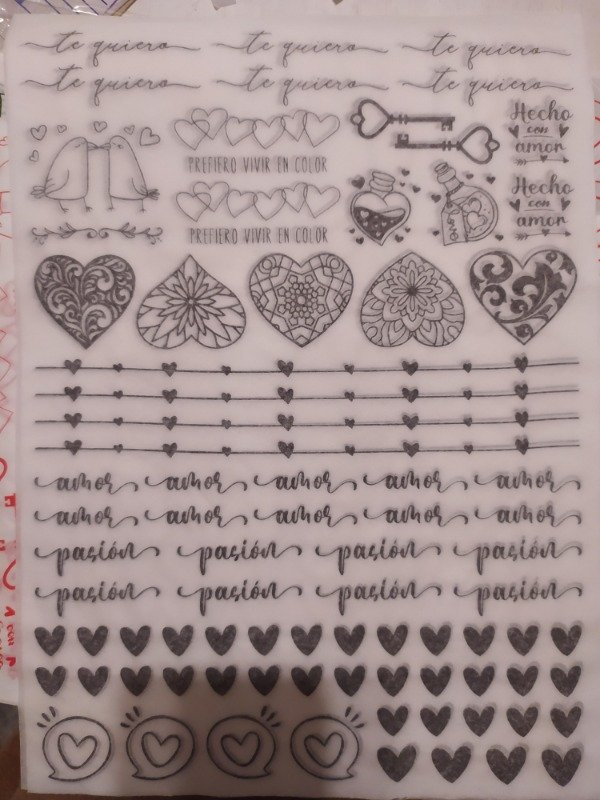 te quiero te quiero te quiero
te quiero te quiero te quiero
Hecho
con
amor
PREFIERO VIVIR EN COLOR
Hecho
con
amor
love
PREFIERO VIVIR EN COLOR
amor amor amor amor amor
amor amor amor amor amor
pasión pasión pasión pasión
pasión pasión pasión pasión